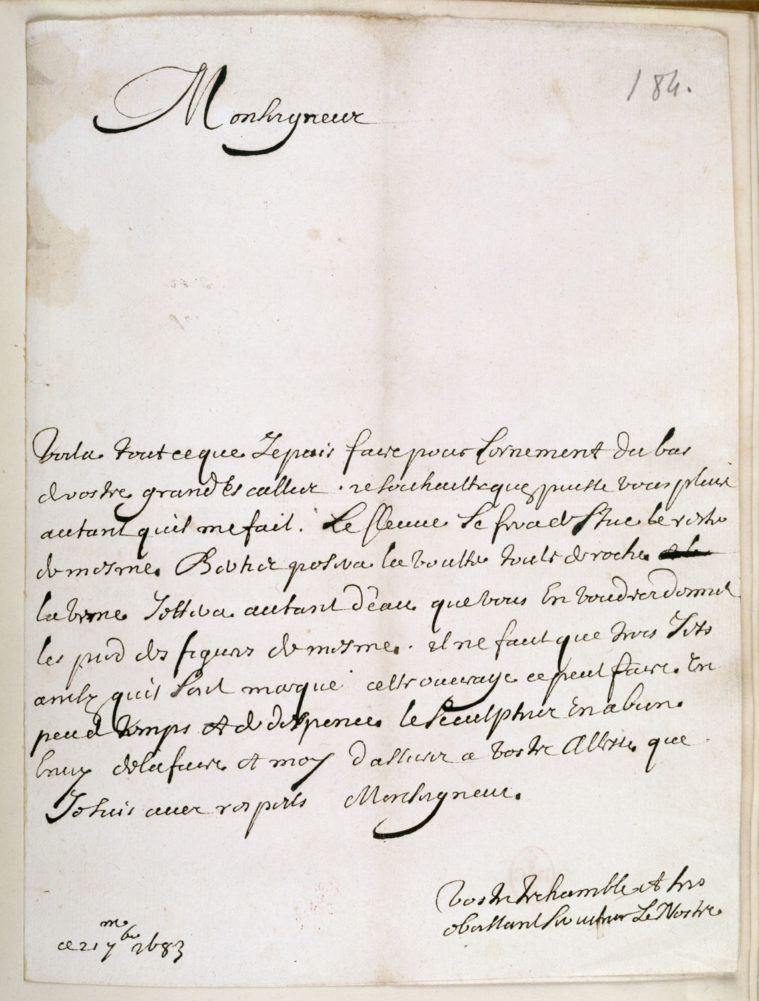 Monseigneur
184.
Voila tout ce que Je puis faire pour Lornement du bas
de vostre grand Escallier . Je souhaitte que puisse vous plaire
autant quil me fait . Le fleuve Se fera de Stuc le reste
de mesme . la voutte toute de roche
la Jettera autant d'eau que vous En voudrez donner
les pied des figures de mesme . il ne faut que trois Jets
quil sont marqué cette ouvrage ce peut faire En
peu d temps et de despence le sculpteur En a bien
Envy de la faire et moy d'assurer a vostre Altesse que
Je suis avec respects Monseigneur .
Vostre tre humble et tres
obeissant Serviteur Le Nostre
ce 21 me 7 bre 1683